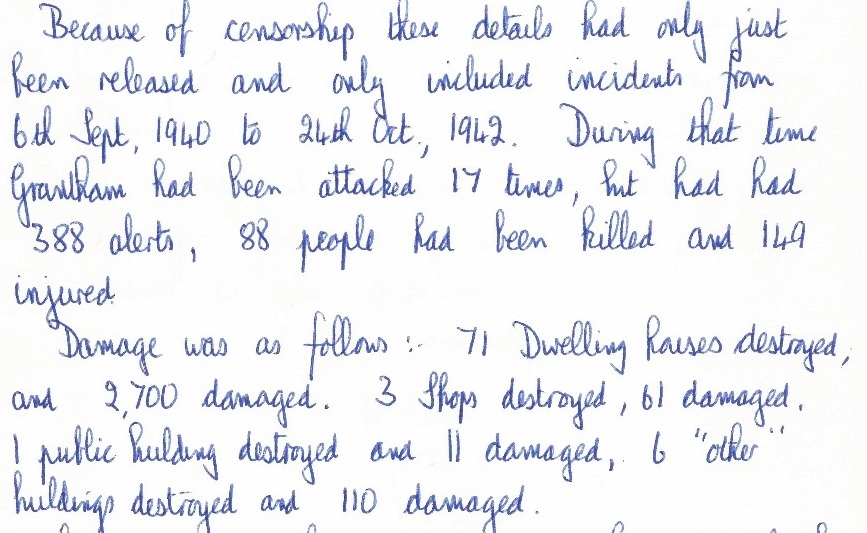 Because of censorship these details had only just
been released and only included incidents from
6th Sept, 1940 to 24th Oct., 1942. During that time
Grantham had been attacked 17 times, but had had
388 alerts, 88 people had been killed and 149
injured.
Damage was as follows :- 71 Dwelling houses destroyed,
and 2,700 damaged. 3 Shops destroyed, 61 damaged.
1 public bulding destroyed and 11 damaged, 6 "other"
buildings destroyed and 110 damaged.